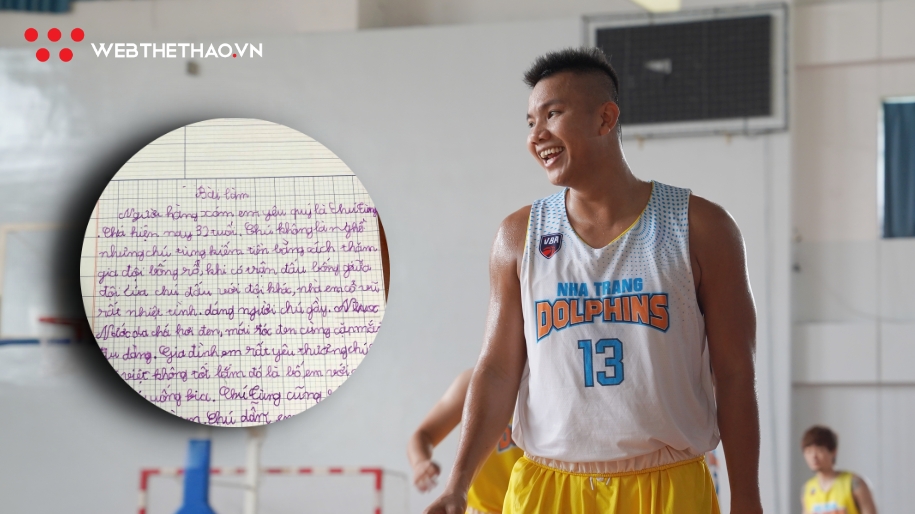 WEBTHETHAO.VN
Bài làm
Người hàng xóm em yêu quý là chú
Chú hiện nay 32 tuổi. Chú không là
những chú cũng kiếm tiền bằng cách tham
gia đội bóng rổ, khi có trận đấu bóng giữa
đội của chú đấu với đội khác, nhà em cổ vũ
rất nhiệt tình. dáng người chú gầy.
Nước da chú hơi đen, mái tóc đen cùng cặp mắt
dịu dàng. Gia đình em rất yêu thương chú
việc không tốt lắm đó là bố em với
uống bia. Chú cũng
Chú dẫn em
VBA
NHA TRANG
DOLPHINS
13